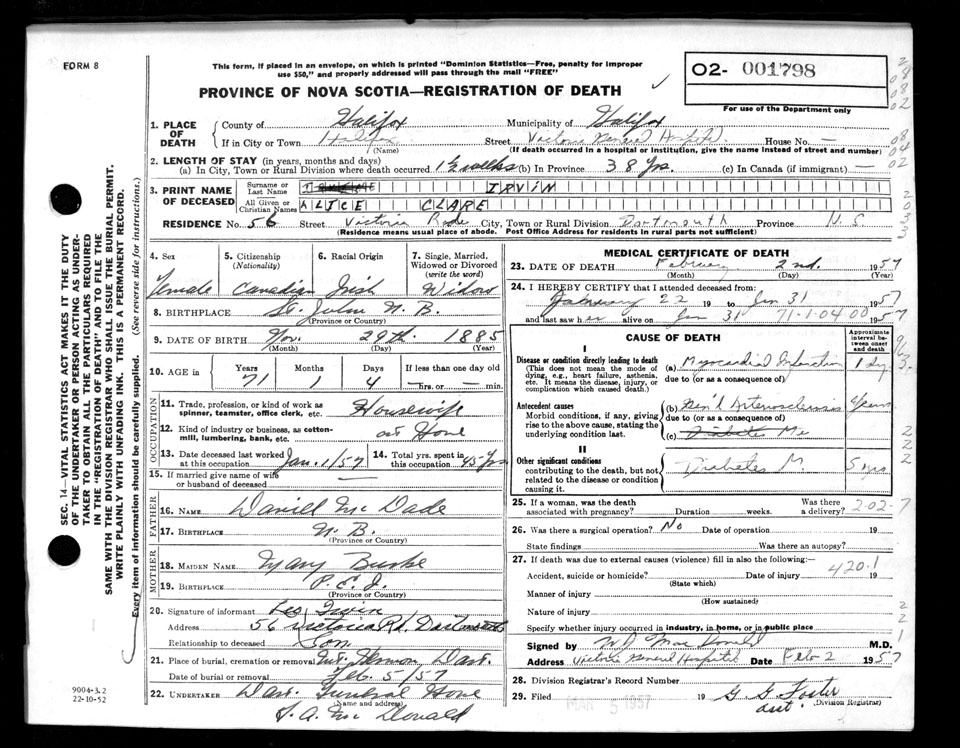 FORM 8
This form, if placed in an envelope, on which is printed "Dominion Statistics—Free, penalty for improper
use $50," and properly addressed will pass through the mail "FREE"
PROVINCE OF NOVA SCOTIA—REGISTRATION OF DEATH
O2- 001798
For use of the Department only
1. PLACE OF DEATH
County of Halifax Municipality of Halifax
If in City or Town Halifax Street Victoria General Hospital House No. —
(Name) (If death occurred in a hospital or institution, give the name instead of street and number)
2. LENGTH OF STAY (in years, months and days)
(a) In City, Town or Rural Division where death occurred 1½ weeks (b) In Province 38 Yrs. (c) In Canada (if immigrant) —
3. PRINT NAME OF DECEASED
Surname or Last Name IRVIN
All Given or Christian Names ALICE CLARE
RESIDENCE No. 56 Street Victoria Rode City, Town or Rural Division Dartmouth Province N. S
(Residence means usual place of abode. Post Office Address for residents in rural parts not sufficient)
4. Sex
Female
5. Citizenship
(Nationality)
Canadian
6. Racial Origin
Irish
7. Single, Married,
Widowed or Divorced
(write the word)
Widow
8. BIRTHPLACE St. John N. B.
(Province or Country)
9. DATE OF BIRTH Nov. 29th. 1885
(Month) (Day) (Year)
10. AGE in
Years Months Days If less than one day old
71 1 4 —hrs. or — min.
OCCUPATION
11. Trade, profession, or kind of work as
spinner, teamster, office clerk, etc. Housewife
12. Kind of industry or business, as cotton-
mill, lumbering, bank, etc. at Home
13. Date deceased last worked
at this occupation Jan. 1/57
14. Total yrs. spent in
this occupation 45 Yrs
15. If married give name of wife
or husband of deceased —
FATHER
16. NAME Daniel McDade
17. BIRTHPLACE N. B.
(Province or Country)
MOTHER
18. MAIDEN NAME Mary Burke
19. BIRTHPLACE P. E. I.
(Province or Country)
20. Signature of informant Leo Irvin
Address 56 Victoria Rd. Dartmouth
Relationship to deceased Son.
21. Place of burial, cremation or removal Mt. Hermon, Dart.
Date of burial or removal Feb. 5/57
22. UNDERTAKER Dart. Funeral Home
(Name and address)
S. A. Mc Donald
MEDICAL CERTIFICATE OF DEATH
23. DATE OF DEATH February 2nd. 1957
(Month) (Day) (Year)
24. I HEREBY CERTIFY that I attended deceased from:
January 22 19 to Jan 31 1957
and last saw her alive on Jan 31 71-1-04 00 1957
CAUSE OF DEATH
Approximate
interval be-
tween onset
and death
I
Disease or condition directly leading to death
(This does not mean the mode of
dying, e.g., heart failure, asthenia,
etc. It means the disease, injury, or
complication which caused death.)
(a) Myocardial Infarction 1 day
due to (or as a consequence of)
Antecedent causes
Morbid conditions, if any, giving
rise to the above cause, stating the
underlying condition last.
(b) Gen'l Arteriosclerosis years
due to (or as a consequence of)
(c) Diabetes Me
II
Other significant conditions
contributing to the death, but not
related to the disease or condition
causing it.
Diabetes M. 5 yrs
25. If a woman, was the death
associated with pregnancy? Duration weeks. Was there
a delivery? 2-02-7
26. Was there a surgical operation? No Date of operation 19
State findings Was there an autopsy?
27. If death was due to external causes (violence) fill in also the following:—
420.1
Accident, suicide or homicide? Date of injury 19
(State which)
Manner of injury
(How sustained)
Nature of injury
Specify whether injury occurred in industry, in home, or in public place
Signed by W D Mac Donald M.D.
Address Victoria General Hospital Date Feb 2 1957
28. Division Registrar's Record Number
29. Filed MAR 5 1957 19 G. G. Foster
asst. (Division Registrar)
SEC. 14—VITAL STATISTICS ACT MAKES IT THE DUTY
OF THE UNDERTAKER OR PERSON ACTING AS UNDER-
TAKER TO OBTAIN ALL THE PARTICULARS REQUIRED
IN THE "REGISTRATION OF DEATH" AND TO FILE THE
SAME WITH THE DIVISION REGISTRAR WHO SHALL ISSUE THE BURIAL PERMIT.
WRITE PLAINLY WITH UNFADING INK. THIS IS A PERMANENT RECORD.
Every item of information should be carefully supplied. (See reverse side for instructions.)
9004-3.2
22-10-52